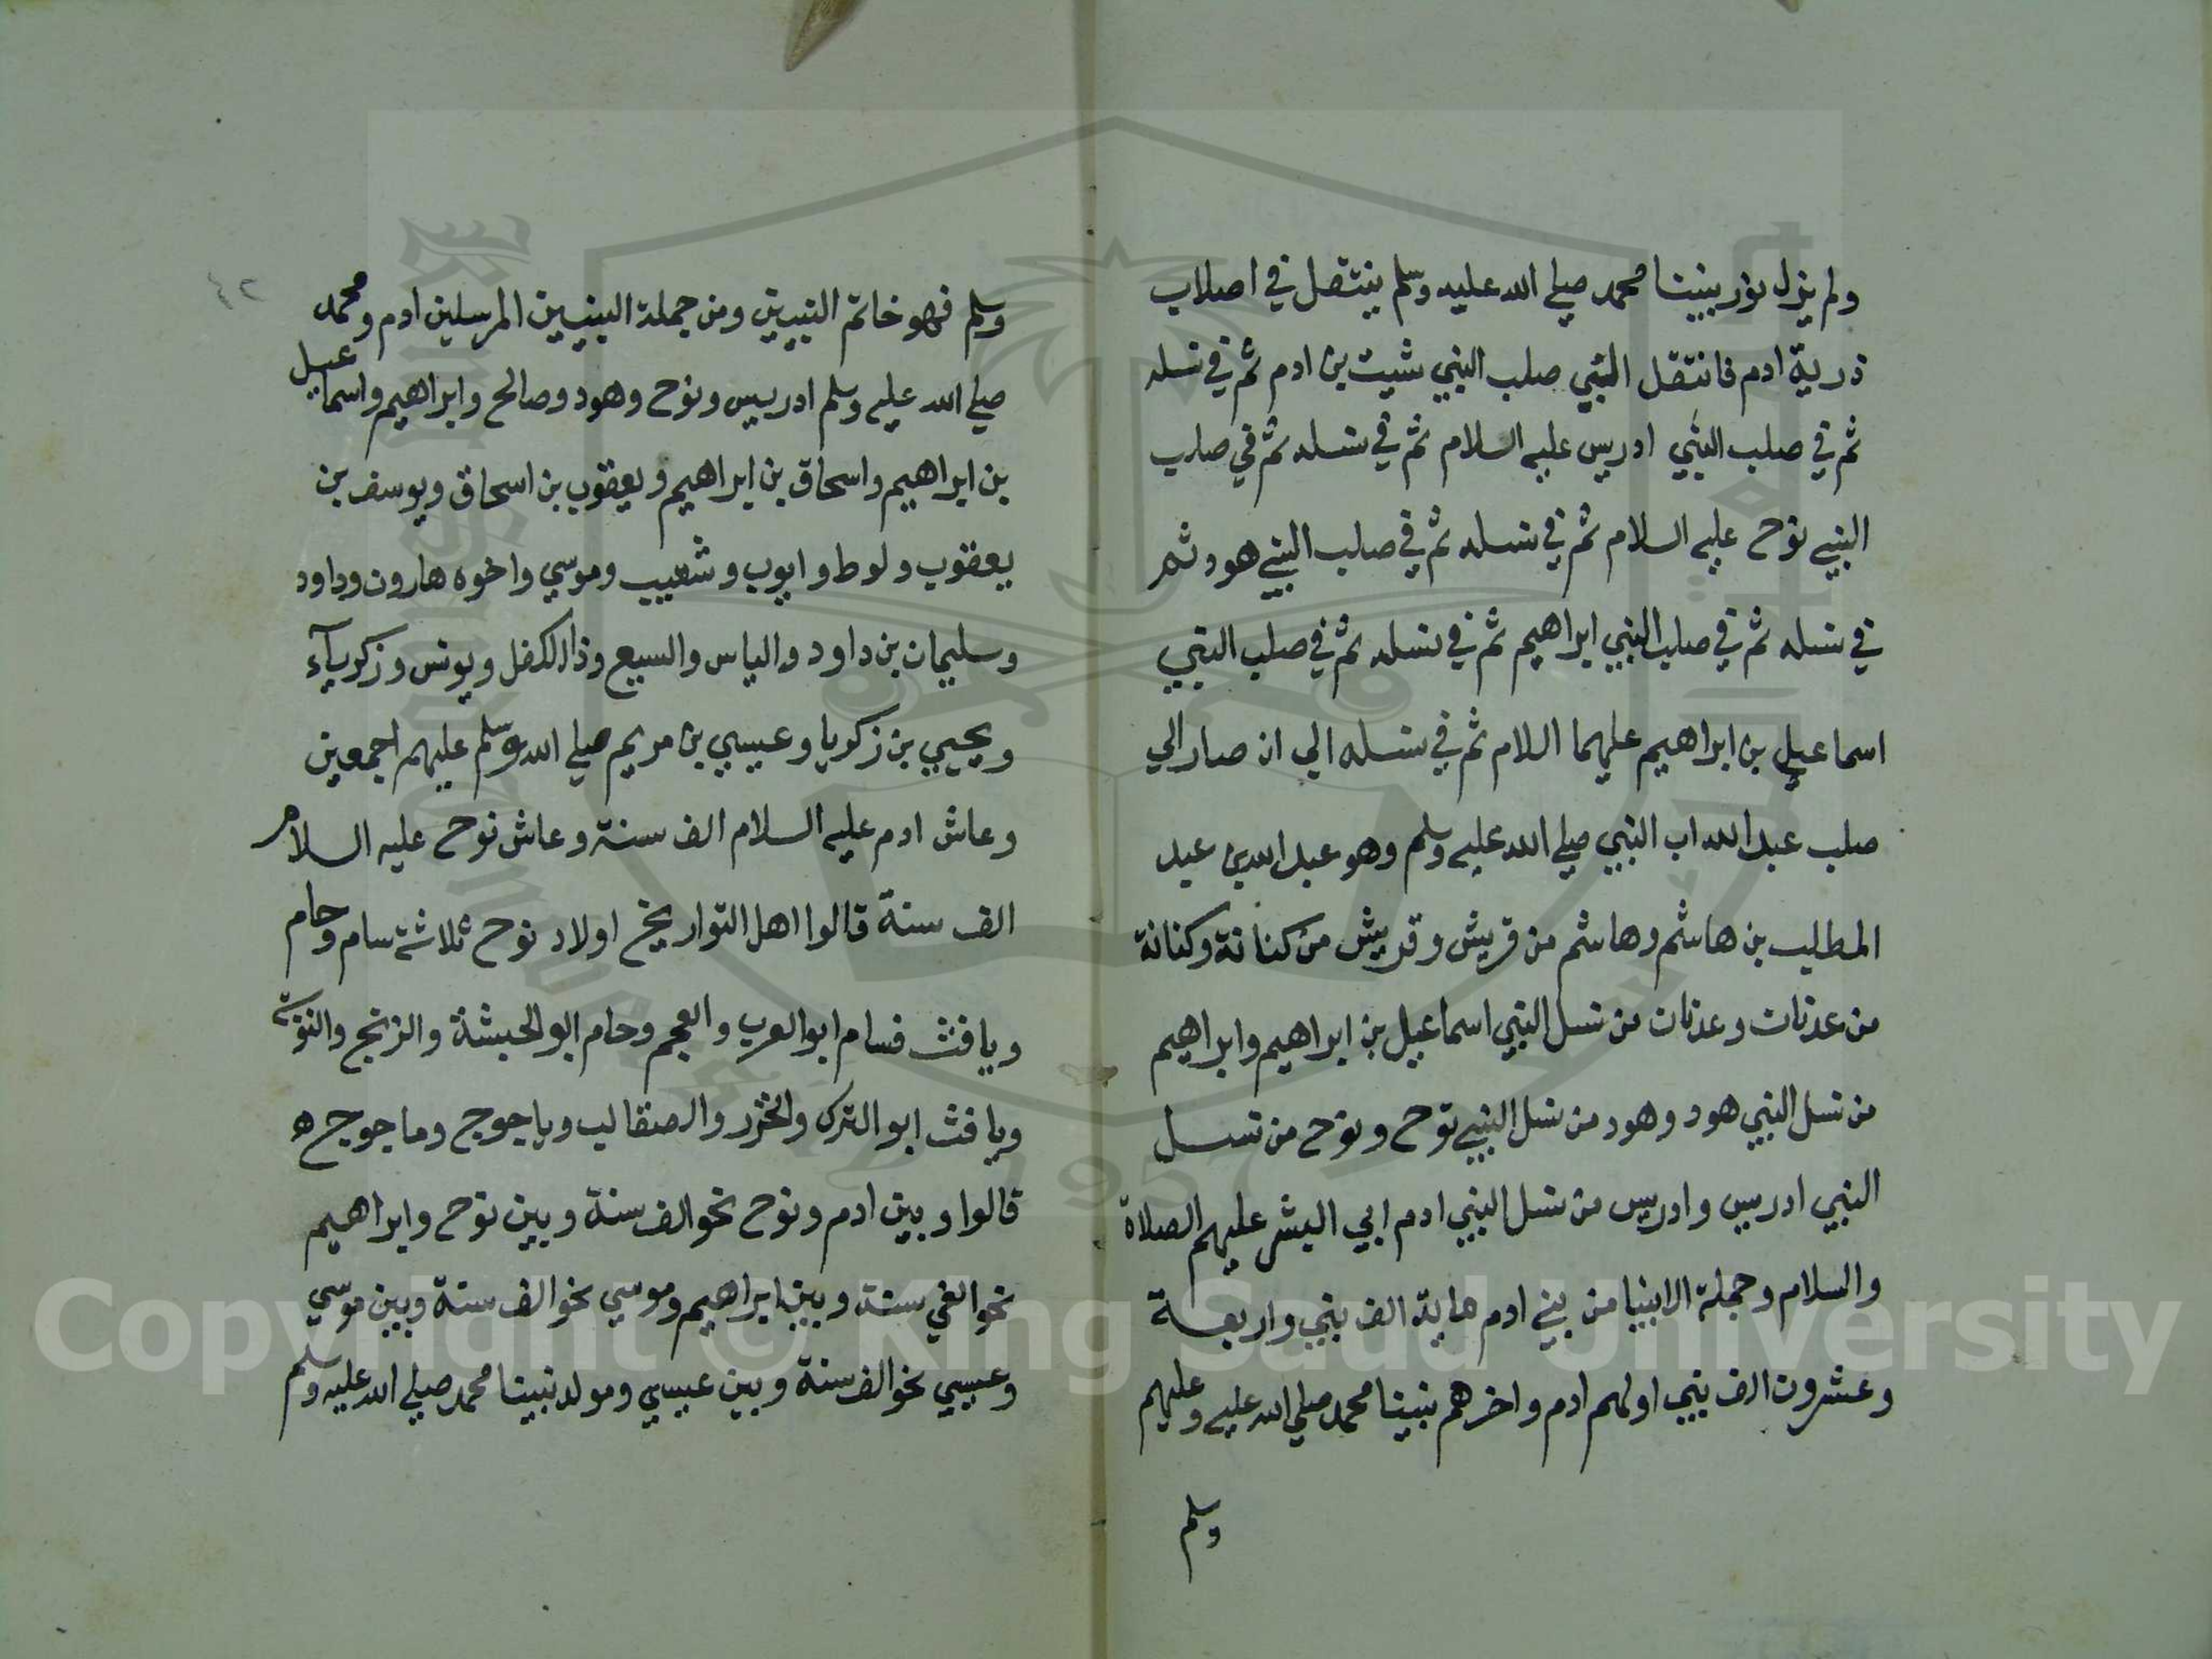 ولم يزل نور نبينا محمد صلي الله عليه وسلم ينتقل في اصلاب
ذرية ادم فانتقل الي صلب النبي شيت بن ادم ثم في نسله
ثم في صلب النبي ادريس عليه السلام ثم في نسله ثم في صلب
النبي نوح عليه السلام ثم في نسله ثم في صلب النبي هود ثم
في نسله ثم في صلب النبي ابراهيم ثم في نسله ثم في صلب النبي
اسماعيل بن ابراهيم عليهما السلام ثم في نسله الي ان صار الي
صلب عبد الله اب النبي صلي الله عليه وسلم وهو عبد الله بن عبد
المطلب بن هاشم وهاشم من قريش وقريش من كنانة وكنانة
من عدنان وعدنان من نسل النبي اسماعيل بن ابراهيم وابراهيم
من نسل النبي هود وهود من نسل النبي نوح ونوح من نسل
النبي ادريس وادريس من نسل النبي ادم ابي البشر عليهم الصلاة
والسلام وجملة الانبيا من بني ادم ماية الف نبي واربعة
وعشرون الف نبي اولهم ادم واخرهم نبينا محمد صلي الله عليه وعليهم
وسلم
٤٢
وسلم فهو خاتم النبيين ومن جملة النبيين المرسلين ادم ومحمد
صلي الله عليه وسلم ادريس ونوح وهود وصالح وابراهيم واسماعيل
بن ابراهيم واسحاق بن ابراهيم ويعقوب بن اسحاق ويوسف بن
يعقوب ولوط وايوب وشعيب وموسي واخوه هارون وداود
وسليمان بن داود والياس واليسع وذا الكفل ويونس وزكرياء
ويحيي بن زكريا وعيسي بن مريم صلي الله وسلم عليهم اجمعين
وعاش ادم عليه السلام الف سنة وعاش نوح عليه السلام
الف سنة قالوا اهل التواريخ اولاد نوح ثلاثة سام وحام
ويافث فسام ابو العرب والعجم وحام ابو الحبشة والزنج والنوبة
ويافث ابو الترك والخزر والصقالب وياجوج وماجوج ه
قالوا وبين ادم ونوح نحو الف سنة وبين نوح وابراهيم
نحو الفي سنة وبين ابراهيم وموسي نحو الف سنة وبين موسي
وعيسي نحو الف سنة وبين عيسي ومولد نبينا محمد صلي الله عليه وسلم
Copyright © King Saud University
1957